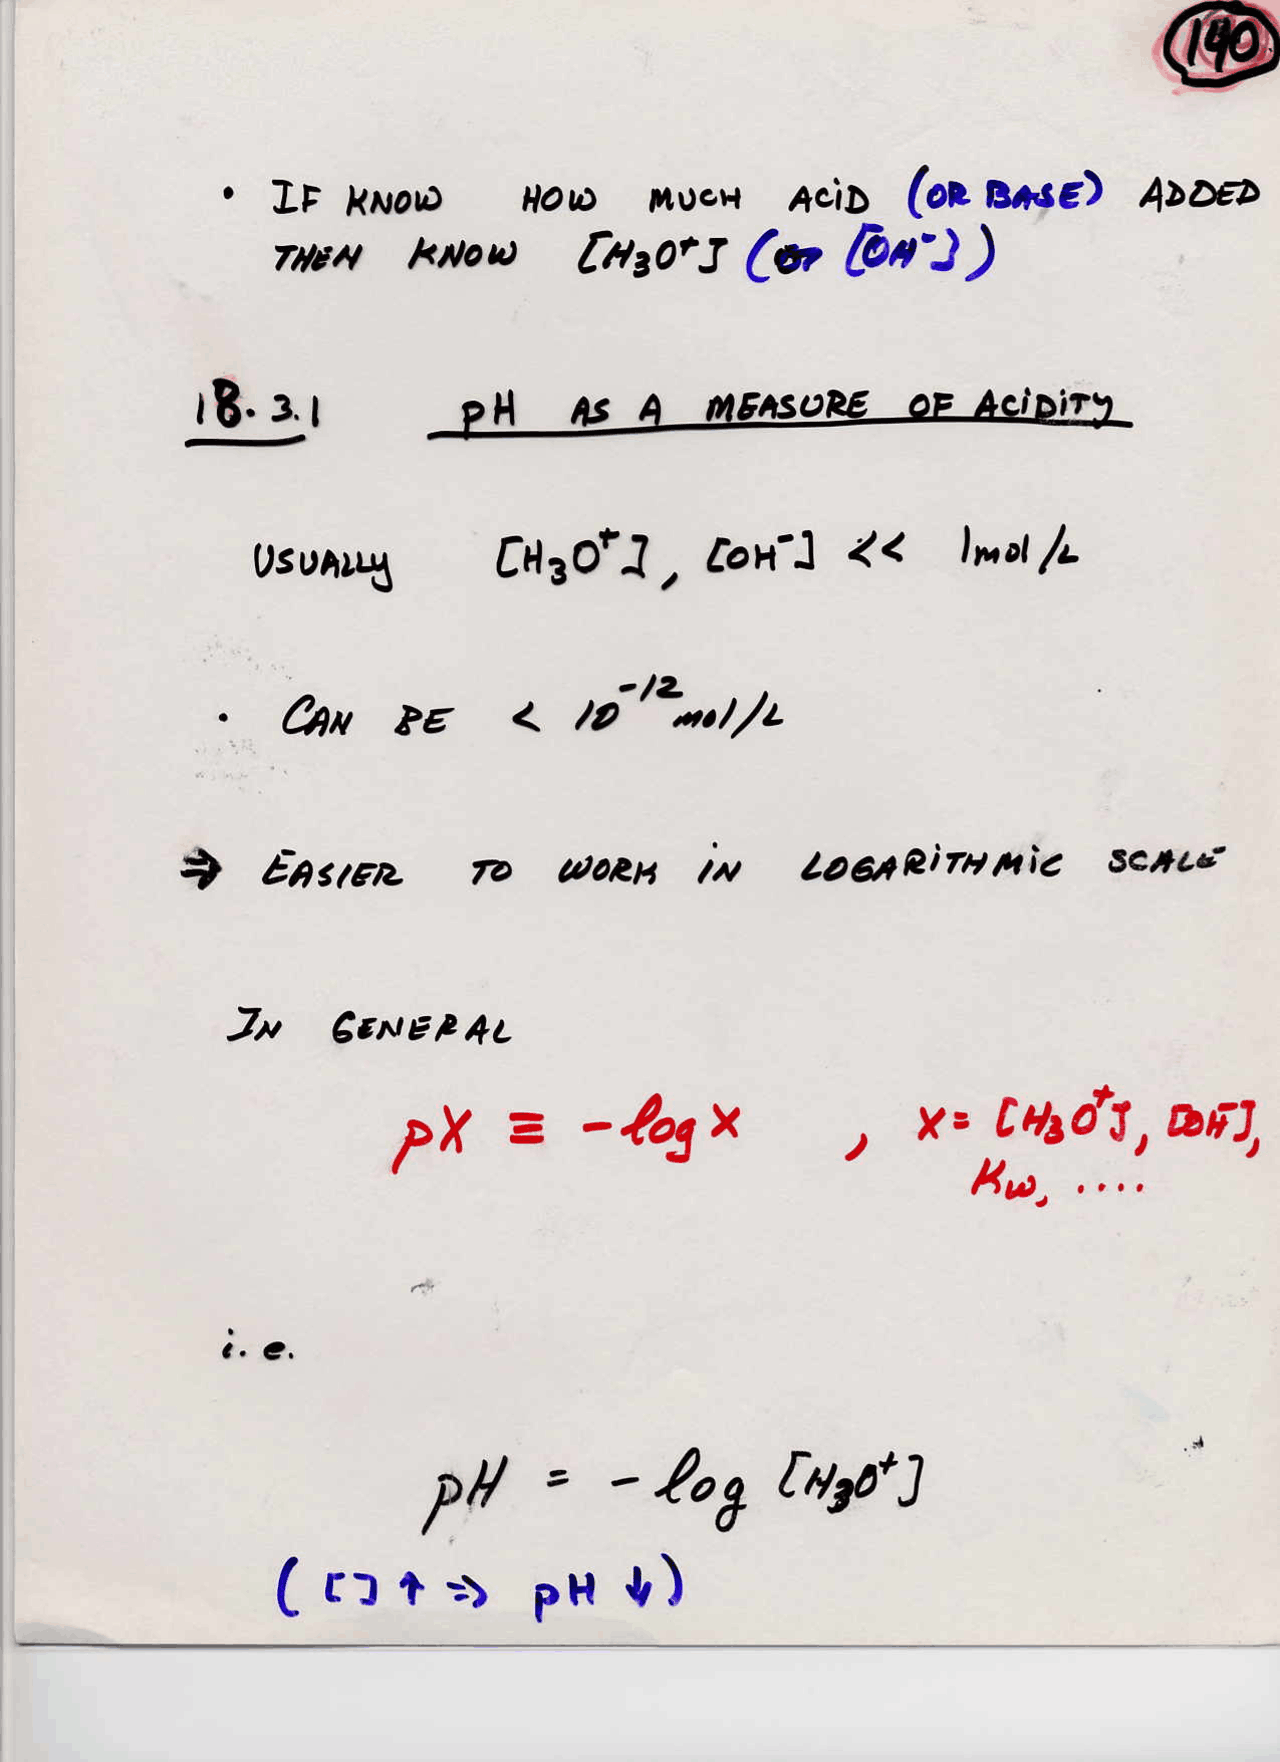 140
• IF KNOW HOW MUCH ACiD (OR BASE) ADDED
THEN KNOW [H₃O⁺] (or [OH⁻])
18.3.1 pH AS A MEASURE OF ACiDiTy
USUALLy [H₃O⁺], [OH⁻] << 1mol/L
• CAN BE < 10⁻¹² mol/L
⇒ EASIER TO WORK iN LOGARiTHMiC SCALE
IN GENERAL
pX ≡ -log X , X = [H₃O⁺], [OH⁻],
Kw, ....
i.e.
pH = - log [H₃O⁺]
([] ↑ ⇒ pH ↓)